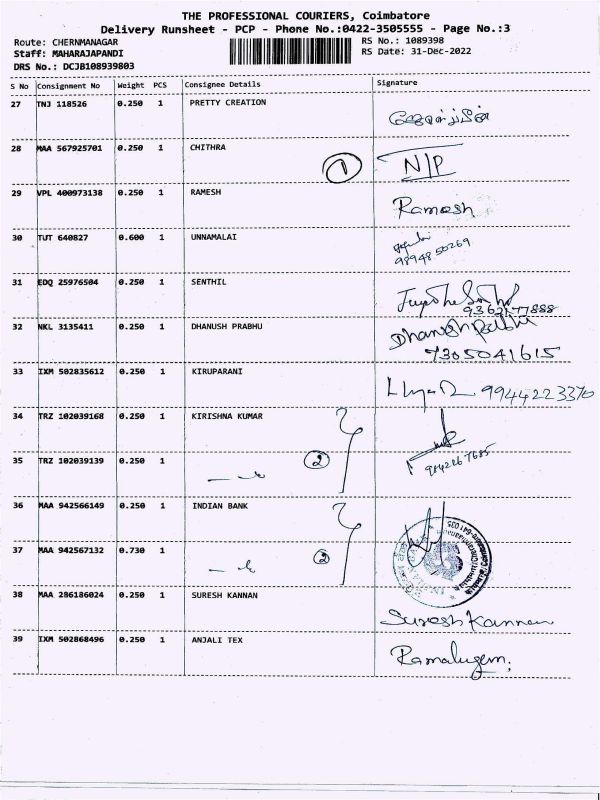 THE PROFESSIONAL COURIERS, Coimbatore
Delivery Runsheet - PCP - Phone No.:0422-3505555 - Page No.:3
Route: CHERNMANAGAR RS No.: 1089398
Staff: MAHARAJAPANDI RS Date: 31-Dec-2022
DRS No.: DCJB108939803
S No Consignment No Weight PCS Consignee Details Signature
27 TNJ 118526 0.250 1 PRETTY CREATION
28 MAA 567925701 0.250 1 CHITHRA 1 N/P
29 VPL 400973138 0.250 1 RAMESH Ramesh
30 TUT 640827 0.600 1 UNNAMALAI
9894850269
31 EDQ 25976504 0.250 1 SENTHIL
9362177888
32 NKL 3135411 0.250 1 DHANUSH PRABHU Dhanush Prabhu
7305041615
33 IXM 502835612 0.250 1 KIRUPARANI 9944223370
34 TRZ 102039168 0.250 1 KIRISHNA KUMAR
35 TRZ 102039139 0.250 1 2
36 MAA 942566149 0.250 1 INDIAN BANK
37 MAA 942567132 0.730 1 2
38 MAA 286186024 0.250 1 SURESH KANNAN Suresh Kannan
39 IXM 502868496 0.250 1 ANJALI TEX